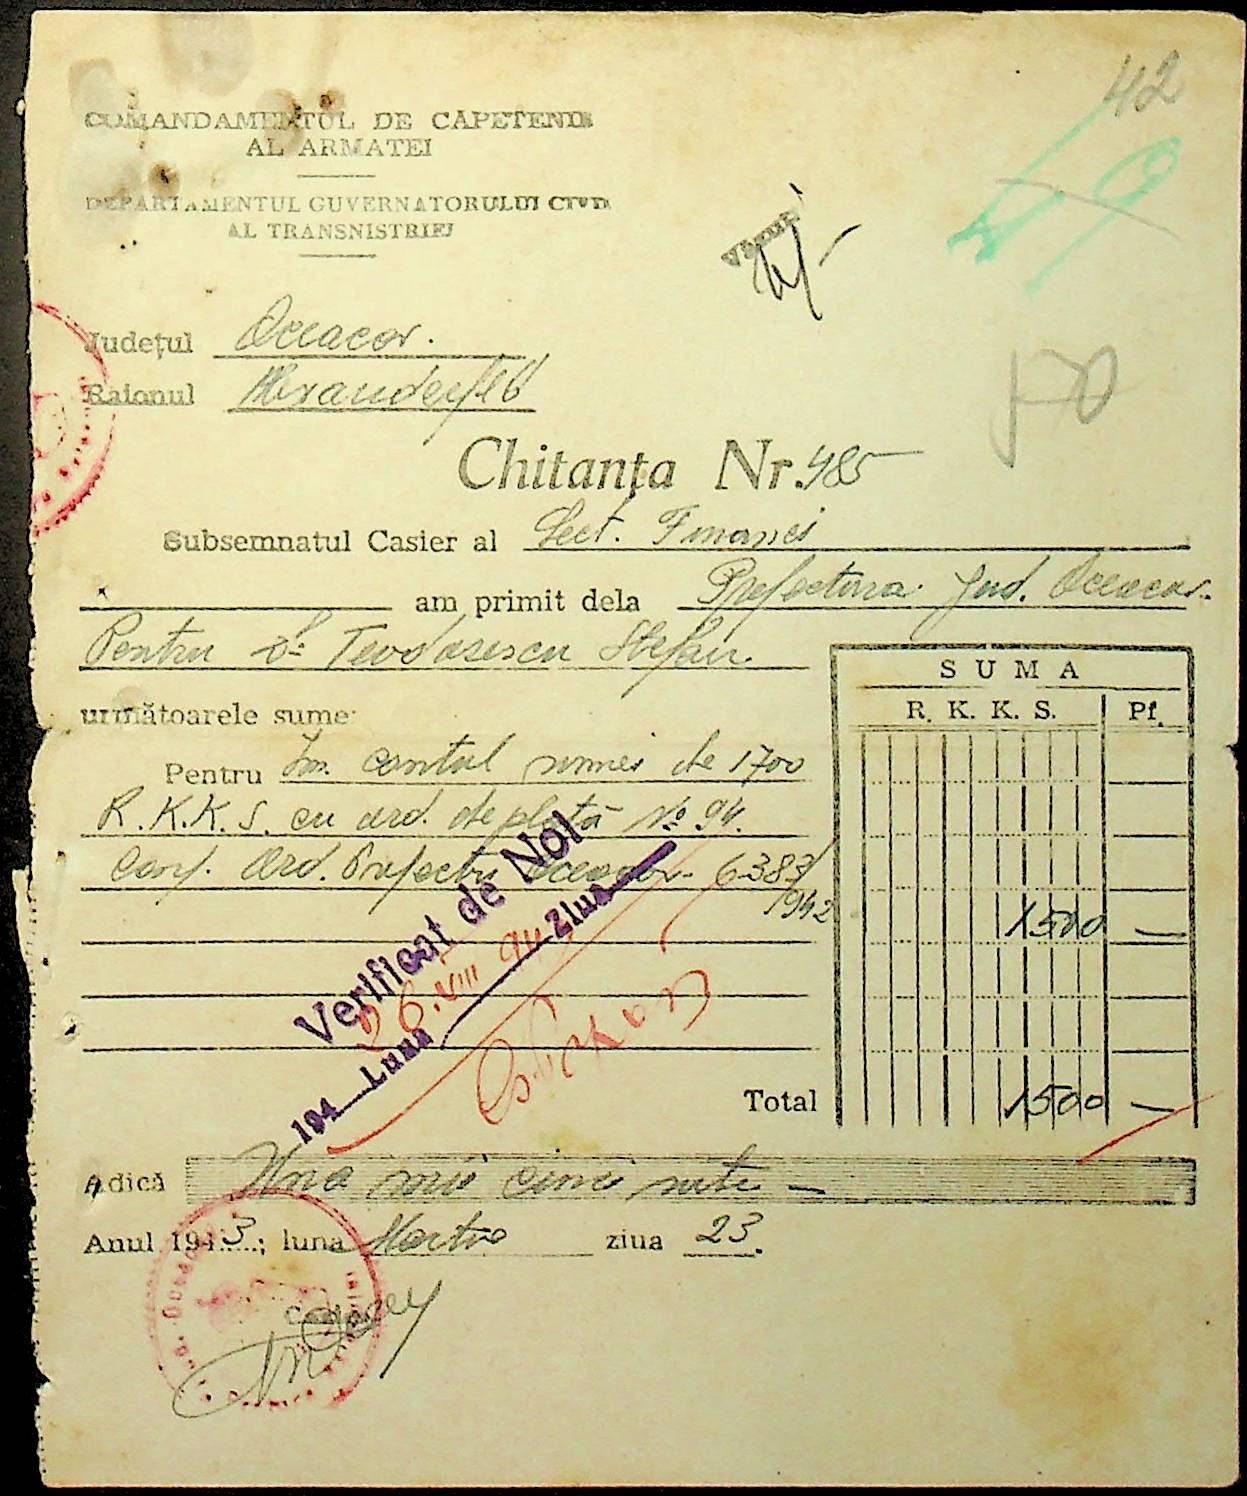 42
COMANDAMENTUL DE CAPETENIE
AL ARMATEI
DEPARTAMENTUL GUVERNATORULUI CIVIL
AL TRANSNISTRIEI
Văzut
Județul Oceacov.
Raionul Alexanderfeld
170
Chitanța Nr. 485
Subsemnatul Casier al Sect. Financi
am primit dela Prefectura Jud. Oceacov.
Pentru Dl Teodosescu Stefan
următoarele sume:
SUMA
R. K. K. S. Pf.
Pentru In contul sumei de 1700
R.K.K.S. cu ord. de plată No 94.
Conf. Ord. Prefectu Oceacov. 6383/
1942
1500 —
Verificat de Noi
194 Luna Ziua
Total 1500 —
Adică Una mie cinci sute —
Anul 1943; luna Martie ziua 23.